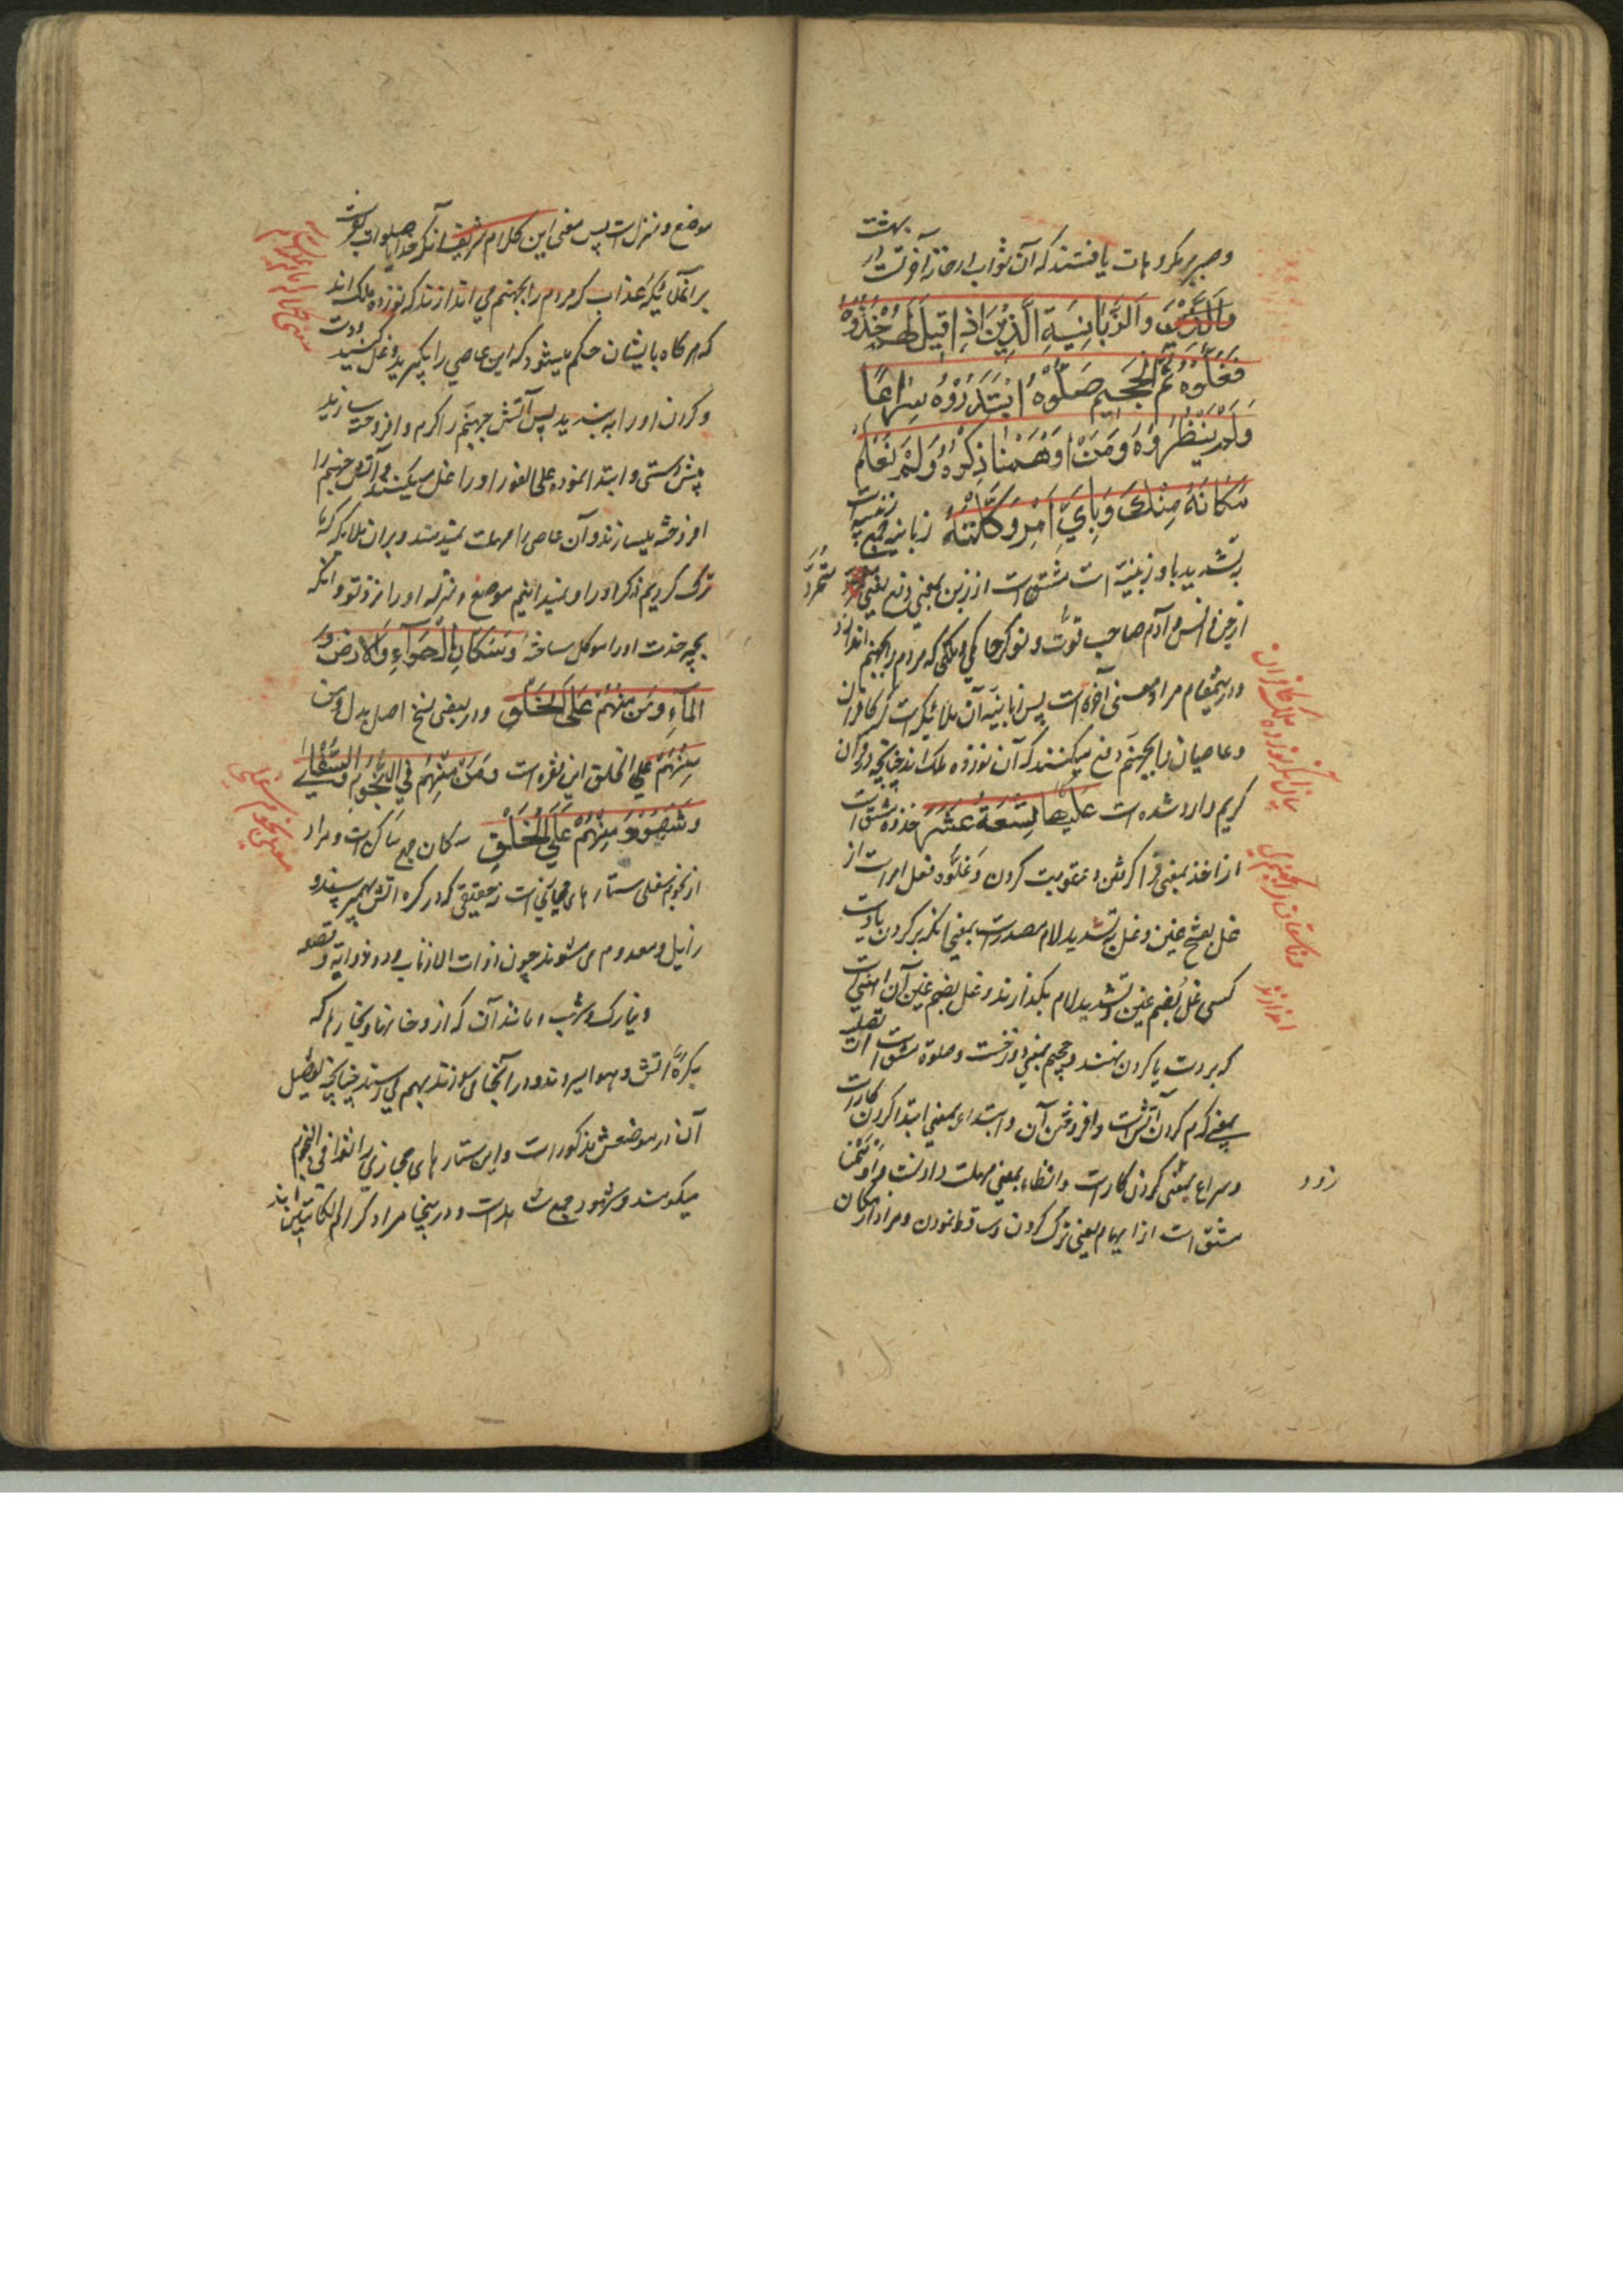 وصبر بر مکروهات یافتند که آن ثواب دار خانه آخرتست از بهشت
والذین وَالزَّبَانِیَةِ الَّذِیْنَ اِذِا قِیلَ لَهُمْ خُذُوْهُ
فَغُلُّوْهُ ثُمَّ الْجَحِیمَ صَلُّوْهُ ابْتَدَرُوْهُ سِرَاعًا
وَلَمْ یُنْظِرُوْهُ وَمَنْ اَوْهَمْنَا ذِکْرَهُ وَلَمْ نَعْلَمْ
مَکَانَهُ مِنْكَ وَبِاَيِّ اَمْرٍ وَکَّلْتَهُ زبانیه جمع زبنیه است
بتشدید با و زبنیة است مشتق است از زبن بمعنی دفع یعنی متمرد
از جن و انس و آدم صاحب قوت و نوکر حاکمی و ملکی که مردم را بجهنم اندازد
و درینمقام مراد معنی آخر است پس زبانیه آن ملائیکه است که کافران
و عاصیان را بجهنم دفع میکنند که آن نوزده ملک اند چنانچه در قرآن
کریم وارد شده است عَلَیْهَا تِسْعَةُ عَشَرَ خذوه مشتق است
از اخذ بمعنی فرا گرفتن و عقوبت کردن و غلّوه فعل امر است از
غل بفتح غین و غل بتشدید لام مصدر است بمعنی آنکه بر گردن یا دست
کسی غل بضم غین و تشدید لام بگذارند و غل بضم غین آن آهنی است
که بر دست یا گردن نهند و جحیم بمعنی دوزخست و صلوه مشتق است از تصلیه
بمعنی گرم کردن آتشست و افروختن آن و ابتدار بمعنی ابتدا کردن کار است
و سراع بمعنی کردن کار است و انظار بمعنی مهلت دادنست و اوهمنا
زود
مشتق است از ایهام بمعنی ترک کردن و ساقط نمودن و مراد از مکان
موضع و منزل است پس معنی این کلام شریف آنکه خداوندا صلوات بفرست
بر آن ملائیکه عذاب که مردم را بجهنم می اندازند که نوزده ملک اند
که هرگاه بایشان حکم میشود که این عاصی را بگیرید و غل کنید دست
و گردن او را ببندید پس آتش جهنم را گرم و افروخته سازید
پیش دستی و ابتدا نموده علی الفور او را غل میکنند و آتش جهنم را
افروخته میسازند و آن عاصی را مهلت نمیدهند و بر آن ملایکه که ما
ترک کردیم ذکر او را و نمیدانیم موضع و منزله او را نزد تو و آنکه
بچه خدمت او را موکل ساخته وَسُکَّانِ الْهَوَآءِ وَالْاَرْضِ وَ
الْمَآءِ وَمَنْ مِنْهُمْ عَلَی الْخَلْقِ و در بعضی نسخ اصل بدل و من
مِنْهُمْ علی الخلق این فقره است وَمَنْ مِنْهُمْ فِي النُّجُوْمِ السُّفْلٰی
وَشُهُوْدٍ مِنْهُمْ عَلَی الْخَلْقِ سکان جمع ساکن است و مراد
از نجوم سفلی ستاره های مجازی است نه حقیقی که در کره آتش بهم میرسند و
زایل و معدوم می شوند چون ذوات الاذناب و ذو ذوابه و قصعه
و نیازک و شهب و مانند آن که از دخانها و بخارها که
بکره آتش و هوا میروند و در آنجا می سوزند بهم می رسند چنانچه تفصیل
آن در موضعش مذکور است و این ستاره های مجازی را
میگویند و شهود جمع شاهد است و درینجا مراد کرام الکاتبین اند